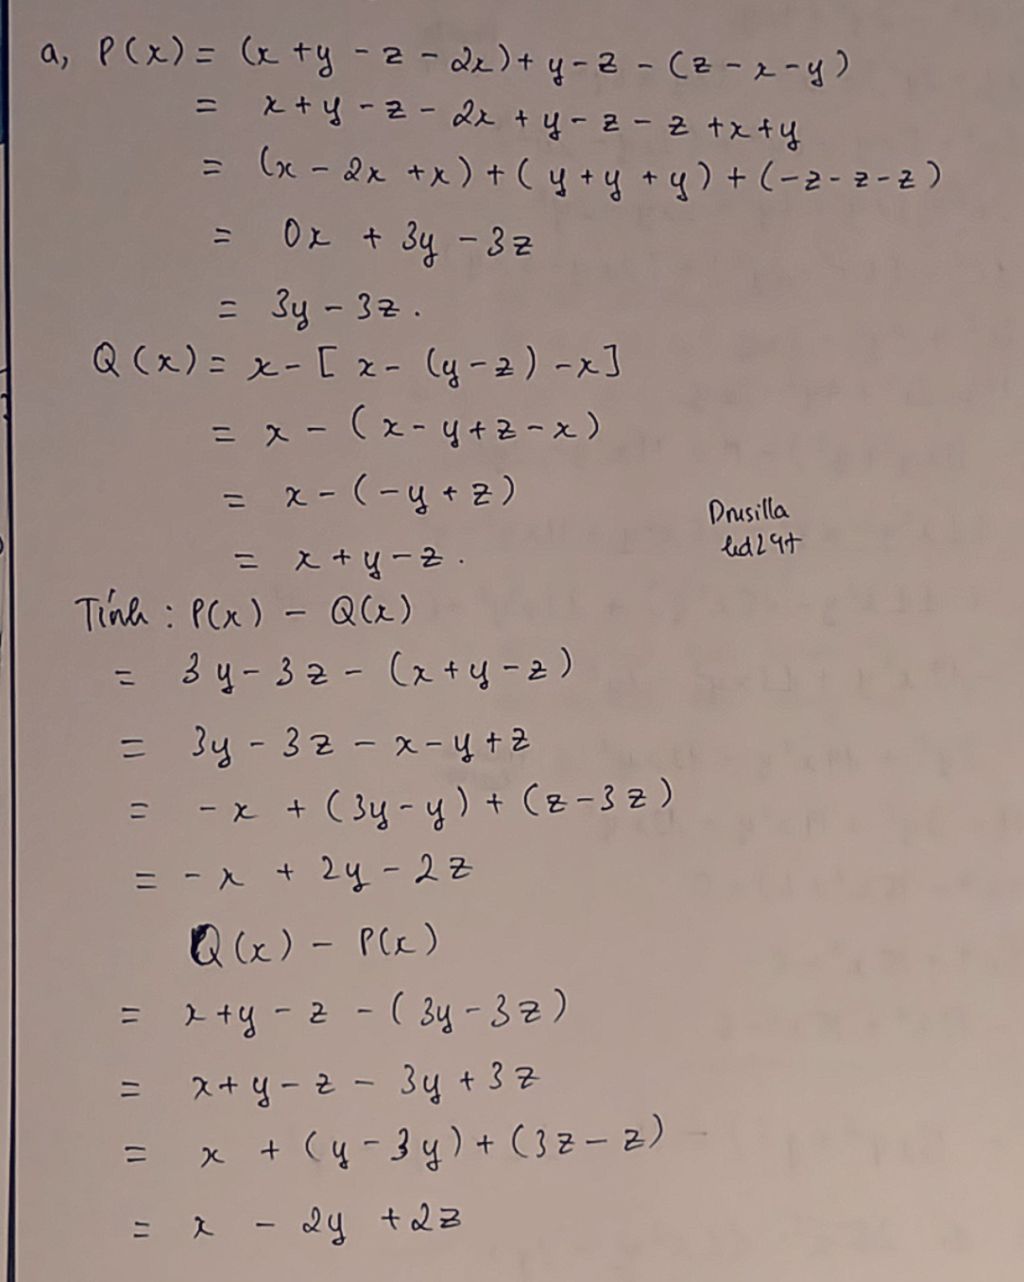 a, P(x) = (x + y - z - 2x) + y - z - (z - x - y)
= x + y - z - 2x + y - z - z + x + y
= (x - 2x + x) + (y + y + y) + (-z - z - z)
= 0x + 3y - 3z
= 3y - 3z.
Q(x) = x - [x - (y - z) - x]
= x - (x - y + z - x)
= x - (-y + z)
Drusilla
= x + y - z.
Tính : P(x) - Q(x)
= 3y - 3z - (x + y - z)
= 3y - 3z - x - y + z
= -x + (3y - y) + (z - 3z)
= -x + 2y - 2z
Q(x) - P(x)
= x + y - z - (3y - 3z)
= x + y - z - 3y + 3z
= x + (y - 3y) + (3z - z)
= x - 2y + 2z